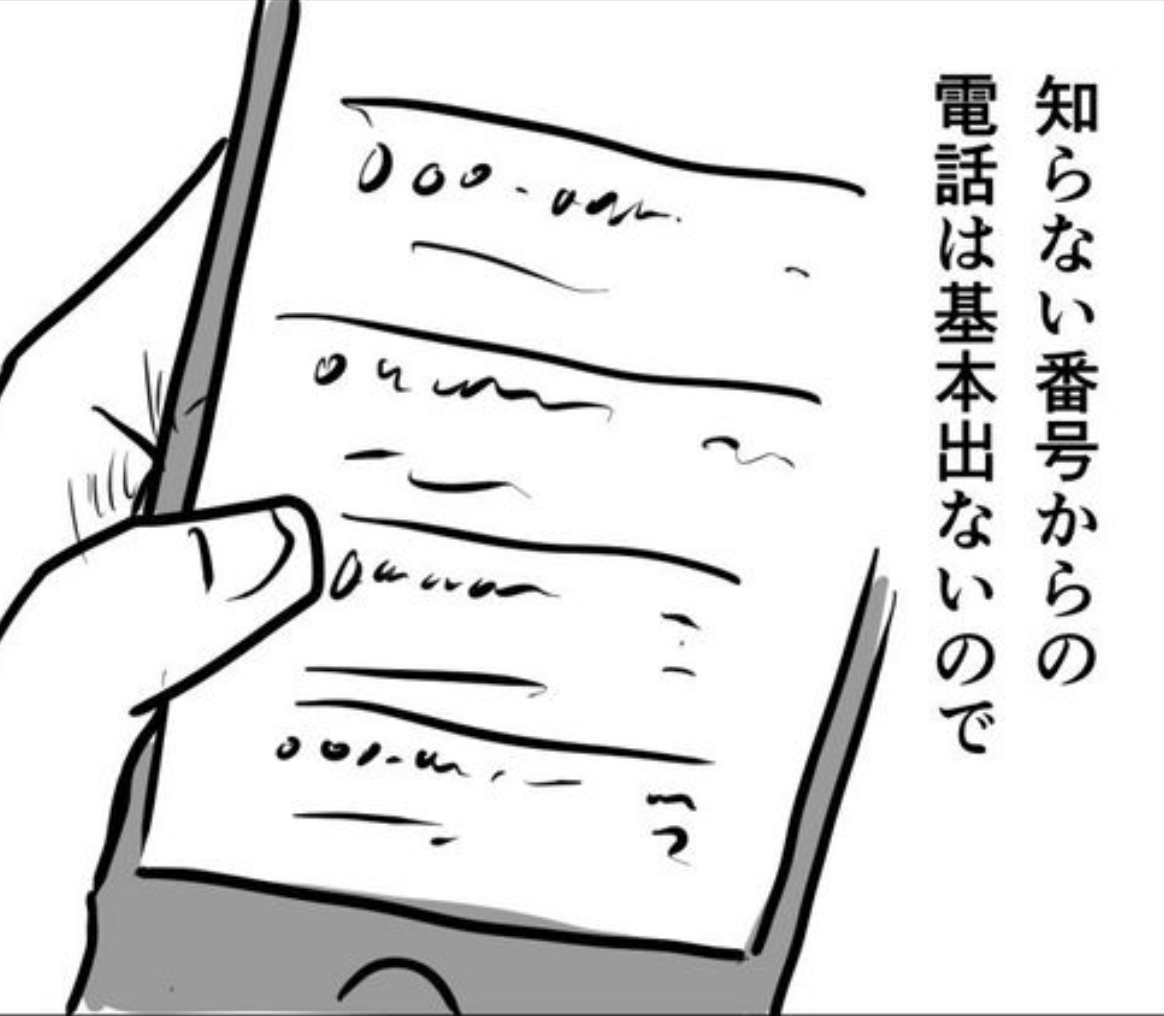 知らない番号からの
電話は基本出ないので